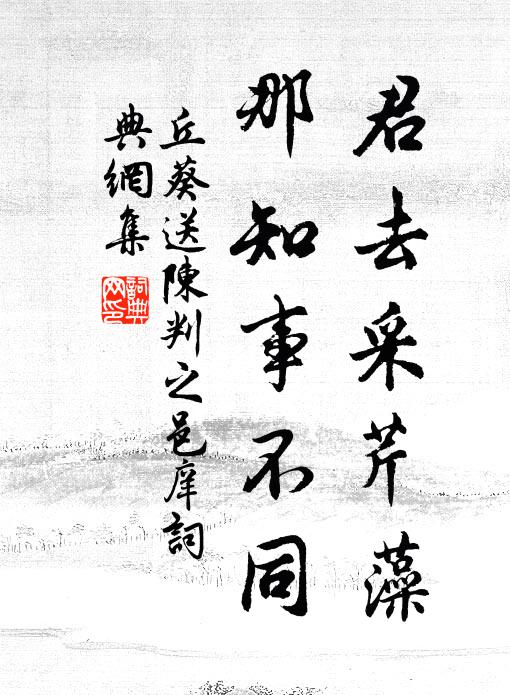 君去采芹藻
那知事不同
丘葵送陳判之邑庠詞
典網集
詞典
网印